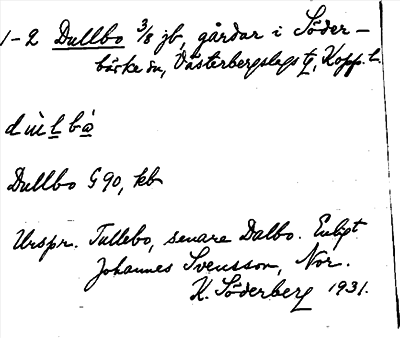 1-2 Dullbo 3/8 jb, gårdar i Söder-
bärke sn, Västerbergslags tg, Kopp. l.
dùlbå
Dullbo G 90, kb
Urspr. Tullebo, senare Dalbo. Enligt
Johannes Svensson, Nor.
K. Söderberg 1931.